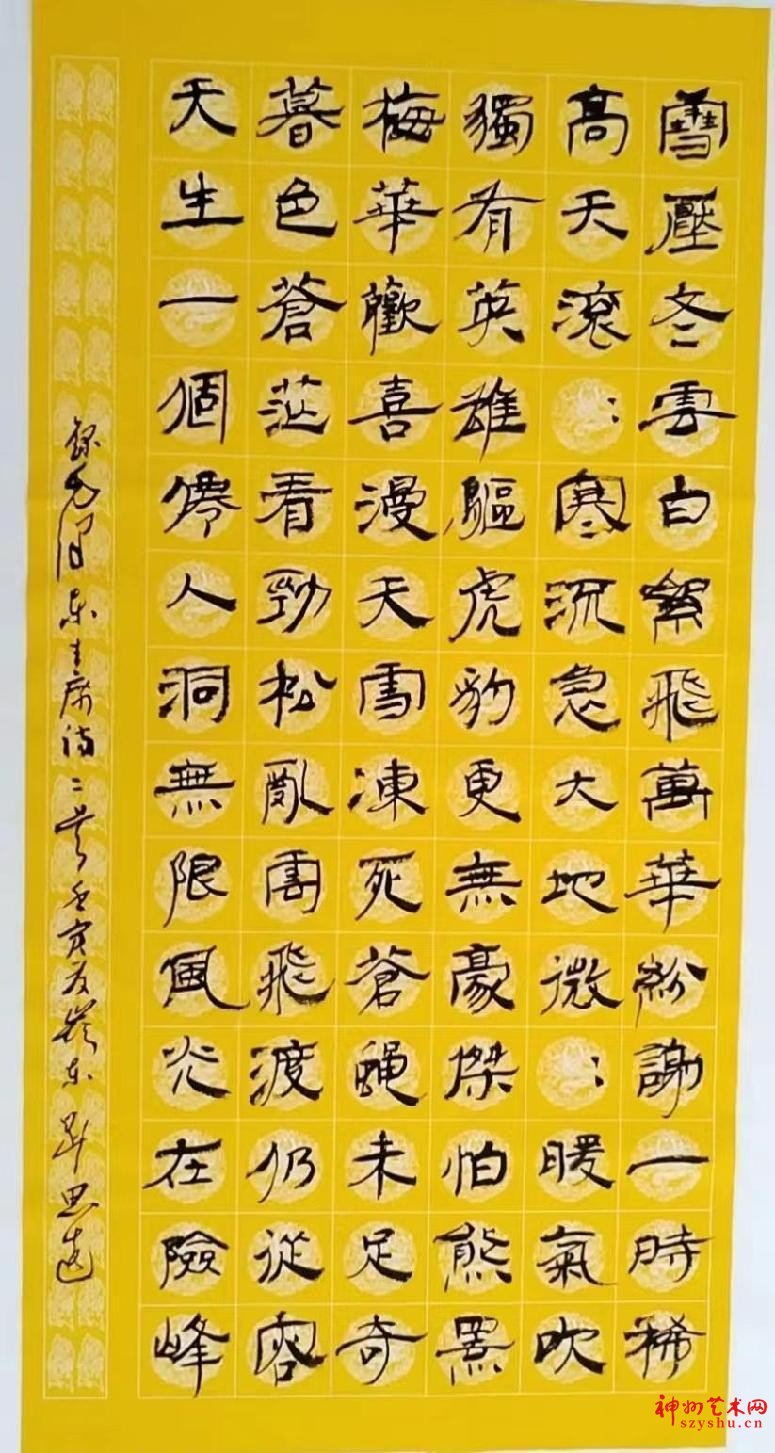 雪壓冬雲白絮飛萬華紛謝一時稀
高天滾：寒流急大地微：暖氣吹
獨有英雄驅虎豹更無豪傑怕熊羆
梅華歡喜漫天雪凍死蒼蠅未足奇
暮色蒼茫看勁松亂雲飛渡仍從容
天生一個僊人洞無限風光在險峰
錄毛澤东主席詩二首壬寅夏嶺东思遠
神州艺术网
szyshu.cn